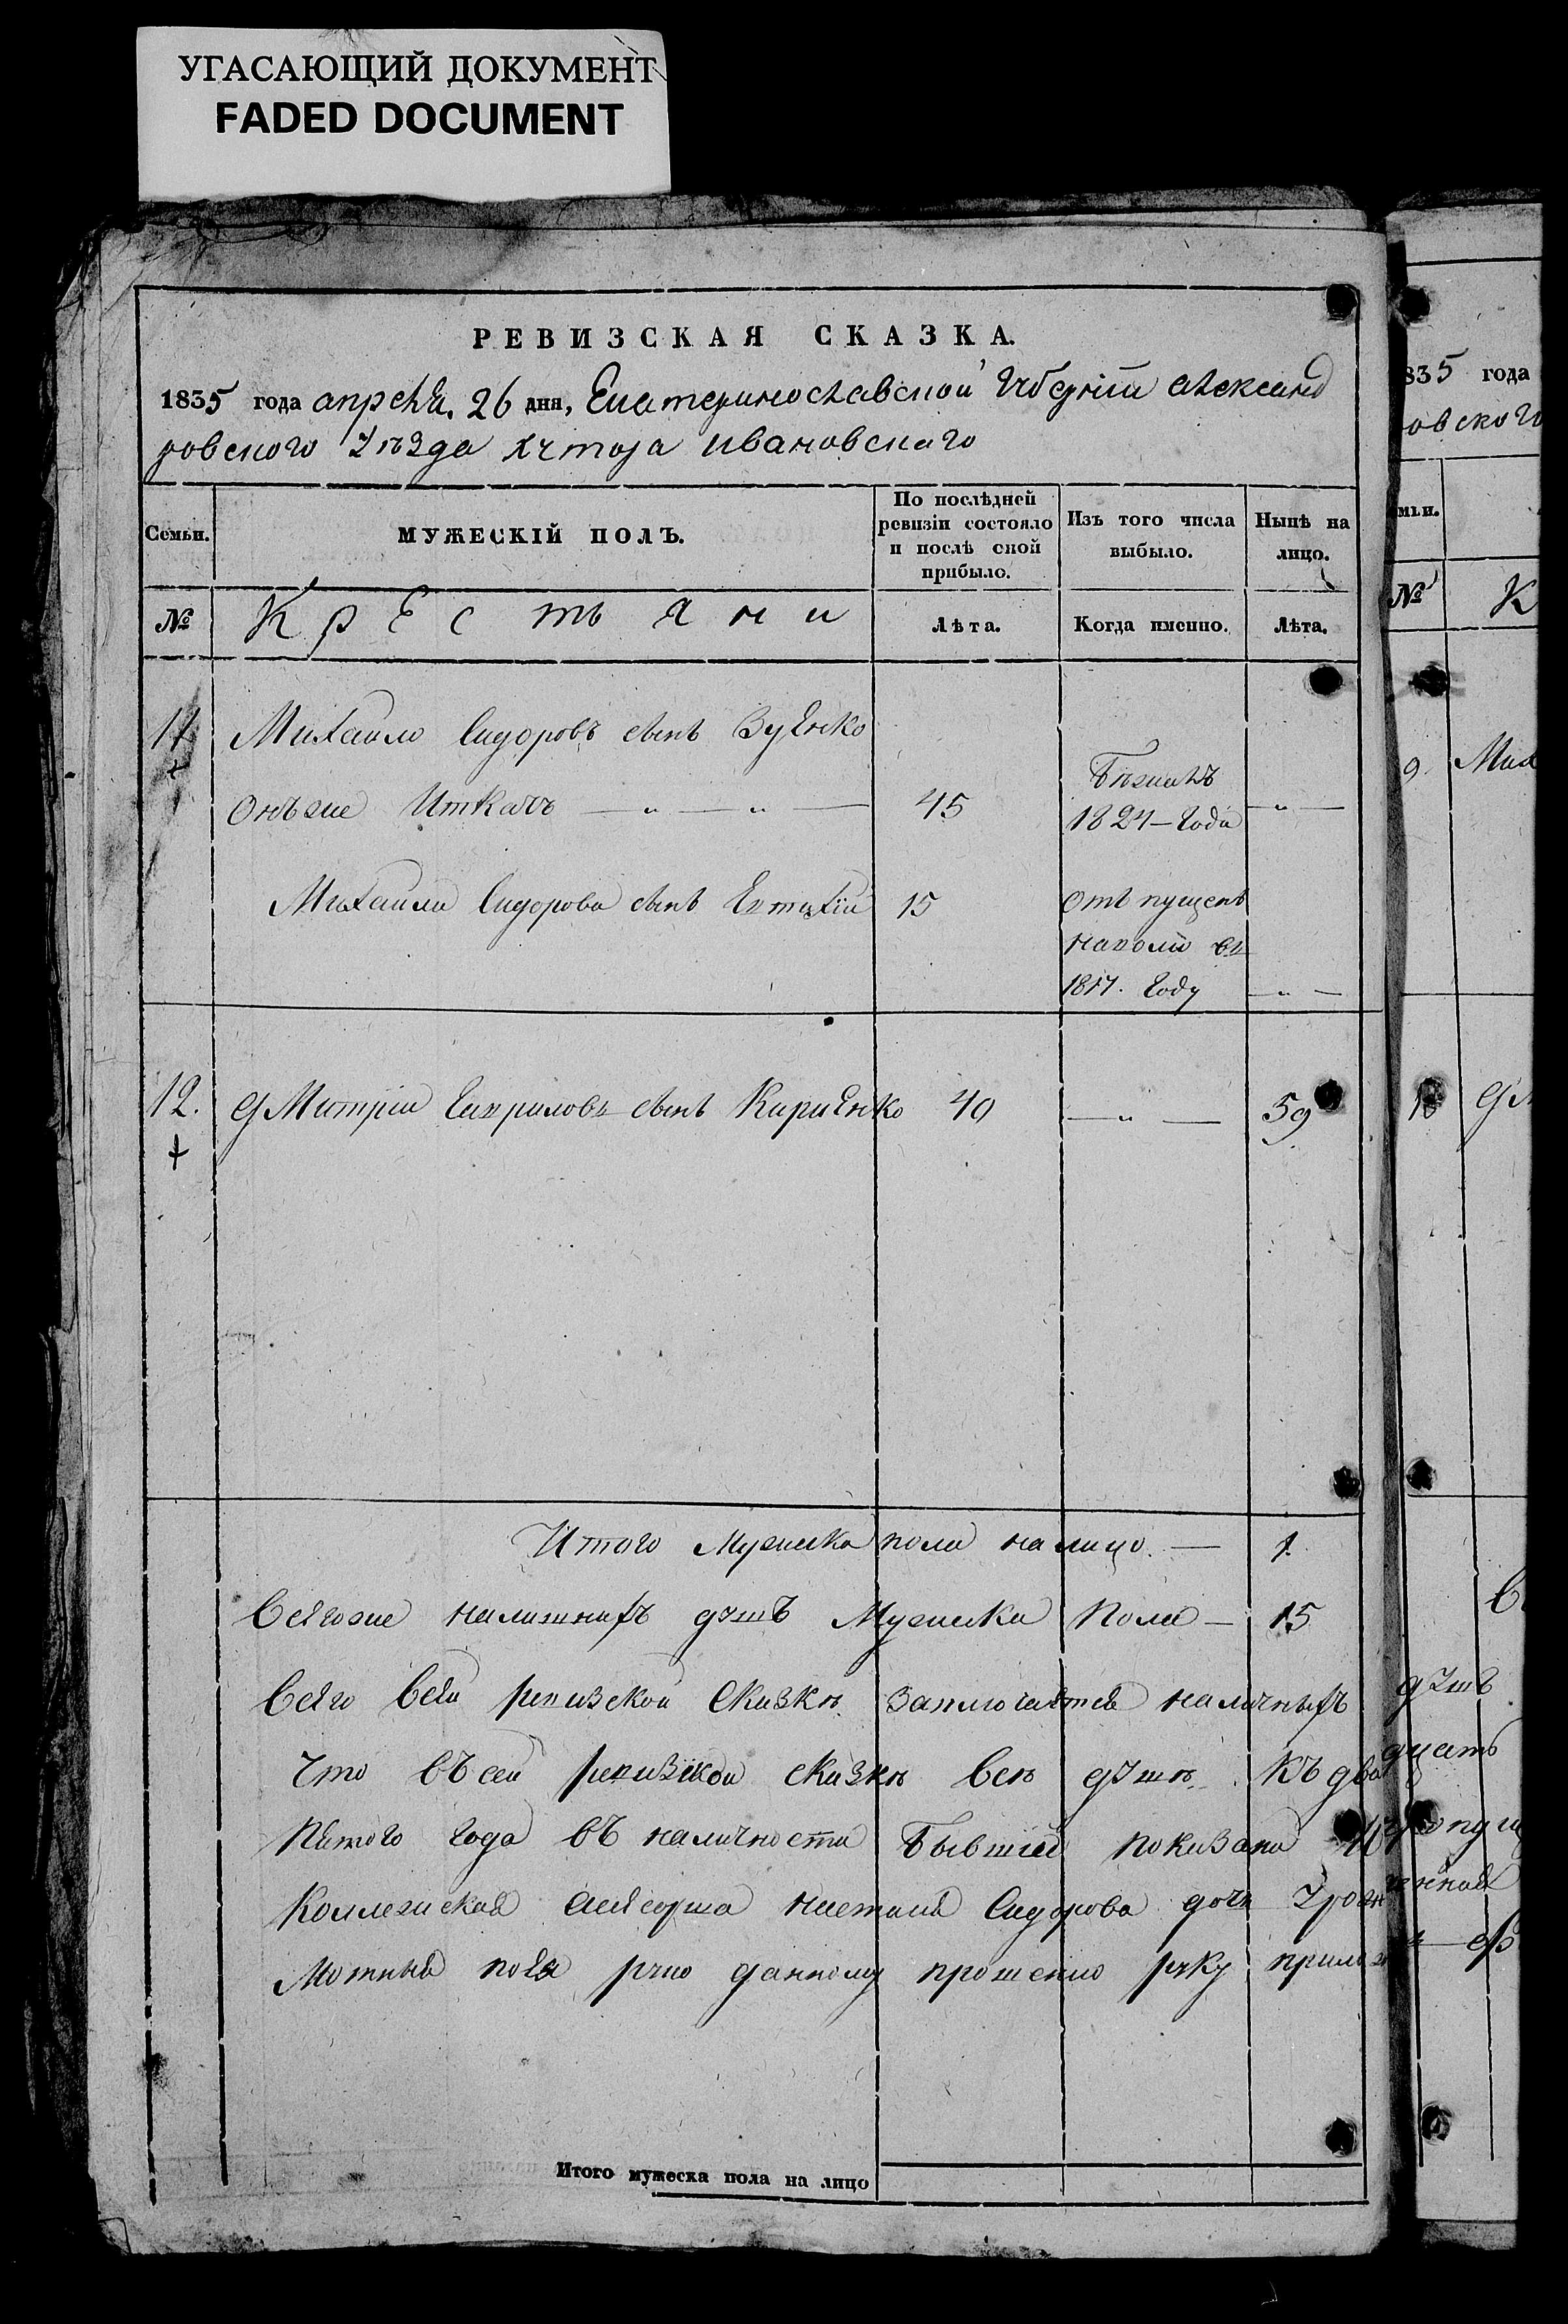 УГАСАЮЩИЙ ДОКУМЕНТ
FADED DOCUMENT
РЕВИЗСКАЯ СКАЗКА.
1835 года апреля. 26 дня, Екатеринославской Губерніи Александ
ровского уѣзда хутора ивановскаго
Семьи.
МУЖЕСКІЙ ПОЛЪ.
По послѣдней
ревизіи состояло
и послѣ оной
прибыло.
Изъ того числа
выбыло.
Нынѣ на
лицо.
№
Крестьяни
Лѣта.
Когда именно.
Лѣта.
11 Михайло Сидоровъ сынъ Зуенко
Онъже Иткачъ — „ — „ — 45 Бѣжалъ 1824 — Года — „ —
Михайла Сидорова сынъ Евтихіи 15 отъ пущенъ
наволю въ
1817. Году — „ —
12. дМитріи Гавриловъ сынъ Кириенко 40 — „ — 59
Итого Мужеска пола налицо. — 1.
Всягоже налишнихъ душъ Мужеска Пола — 15
Всяго всей ревизской Сказкѣ заключается наличныхъ
что въсей ревизкои сказкѣ все душѣ къ два
Пятого года въ наличности Бывшіе показани
Коллежская асясорша настасія Сидорова дочь урож
прошению руку прилож
Итого мужеска пола на лицо
835 года
овского
мьи.
№ К
9. Мих
10 дМ
душъ
дцать
пущ
енная